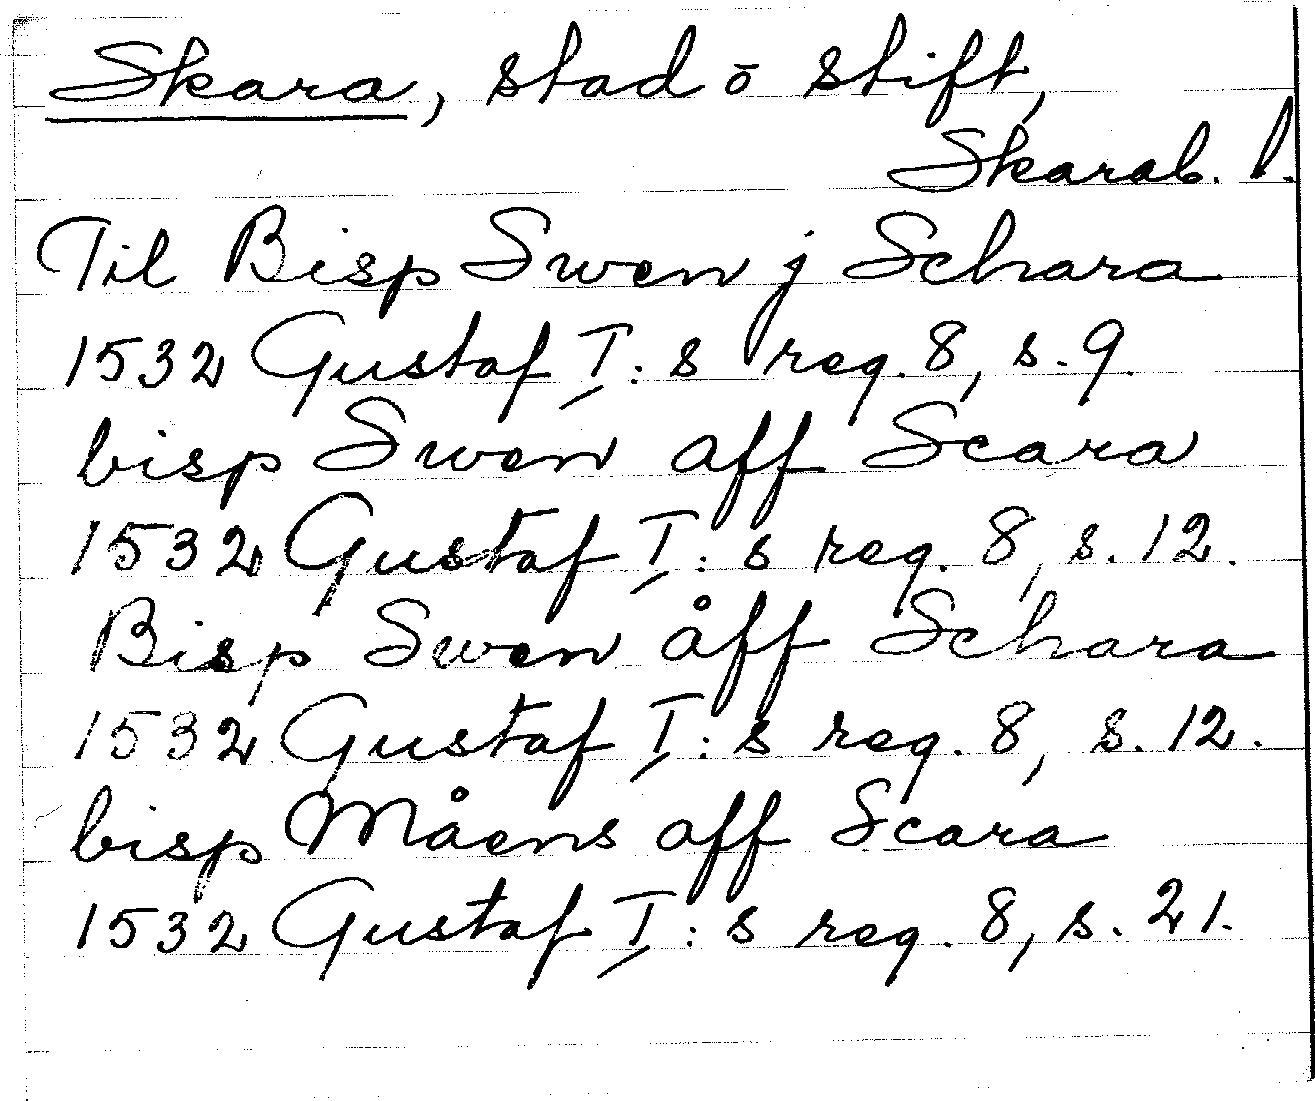 Skara, stad ō stift,
Skarab. l.
Til Bisp Swen j Schara
1532 Gustaf I:s reg. 8, s. 9.
bisp Swen aff Scara
1532 Gustaf I:s reg. 8, s. 12.
Bisp Swen åff Schara
1532 Gustaf I:s reg. 8, s. 12.
bisp Måens aff Scara
1532 Gustaf I:s reg. 8, s. 21.